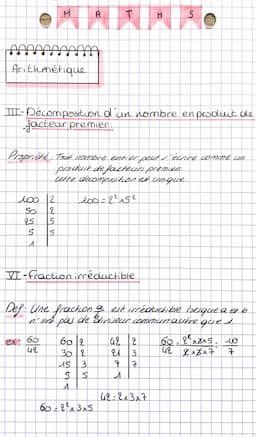 MATHS
Arithmétique
III-Décomposition d'un nombre en produit de
facteur premier.
Propriété: Tout nombre entier peut s'écrire comme un
produit de facteurs premiers
cette décomposition est unique.
100 | 2    100 = 2² × 5²
50 | 2
25 | 5
5 | 5
1 |
VI-Fraction irréductible
Def: Une fraction a/b est irréductible lorsque a et b
n'ont pas de diviseur commun autre que 1
ex: 60/42    60 | 2    42 | 2    60/42 = 2² × 3 × 5 / 2 × 3 × 7 = 10/7
30 | 2    21 | 3
15 | 3    7 | 7
5 | 5    1 |
1 |
42 = 2 × 3 × 7
60 = 2² × 3 × 5